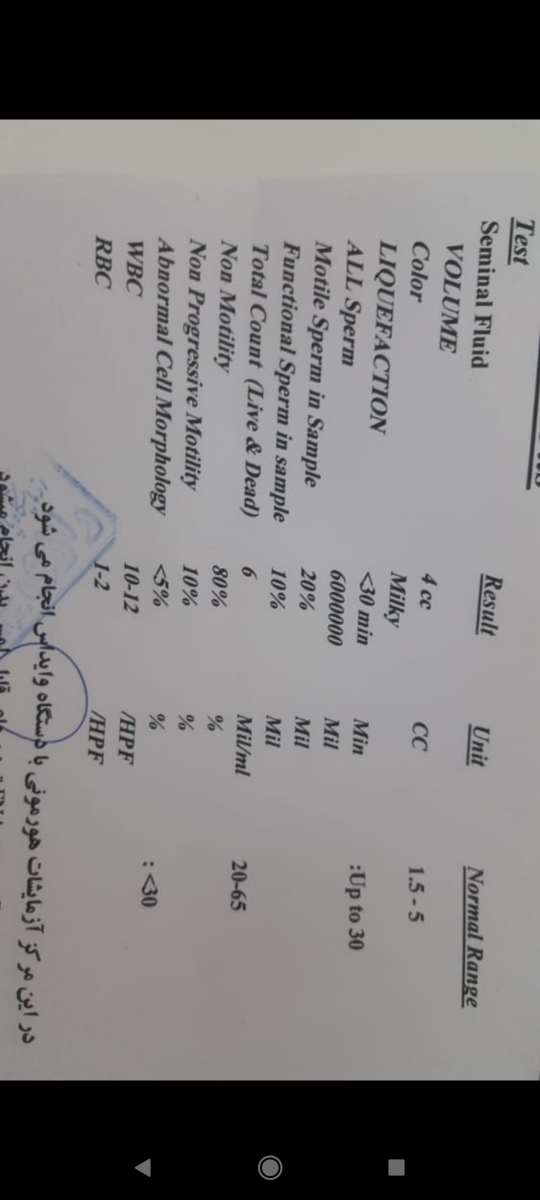 Test Result Unit Normal Range
Seminal Fluid
VOLUME 4 cc CC 1.5 - 5
Color Milky
LIQUEFACTION <30 min Min :Up to 30
ALL Sperm 6000000 Mil
Motile Sperm in Sample 20% Mil
Functional Sperm in sample 10% Mil
Total Count (Live & Dead) 6 Mil/ml 20-65
Non Motility 80% %
Non Progressive Motility 10% %
Abnormal Cell Morphology <5% % : <30
WBC 10-12 /HPF
RBC 1-2 /HPF
در این مرکز آزمایشات هورمونی با دستگاه وایداس انجام می شود